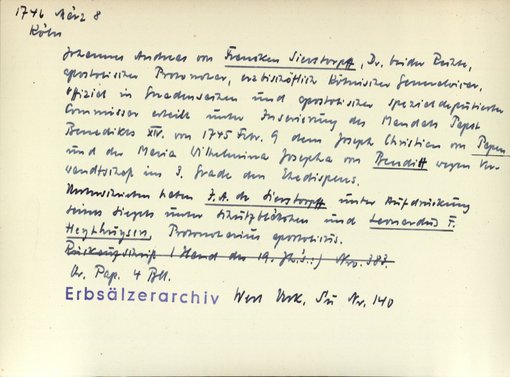 1746 März 8
Köln
Johannes Andreas von Francken Sierstorpff, Dr. beider Rechte,
apostolischer Protonotar, erzbischöflich Kölnischer Generalvicar,
Offizial in Gnadensachen und apostolischer spezialdeputierter
Commissar erteilt unter Inserierung des Mandats Papst
Benedikts XIV. von 1745 Febr. 9 dem Joseph Christian von Papen
und der Maria Wilhelmina Josepha von Benditt wegen Ver-
wandtschaft im 3. Grade den Ehedispens.
Unterschrieben haben J. A. de Sierstorpff unter Aufdrückung
seines Siegels unter Schutzblättchen und Leonardus F.
Heythuysen, Protonotarius apostolicus.
Rückaufschrift (Hand des 19. Jh.s.:) Nro. 383.
Or. Pap. 4 Bll.
Erbsälzerarchiv Werl Urk. Su Nr. 140